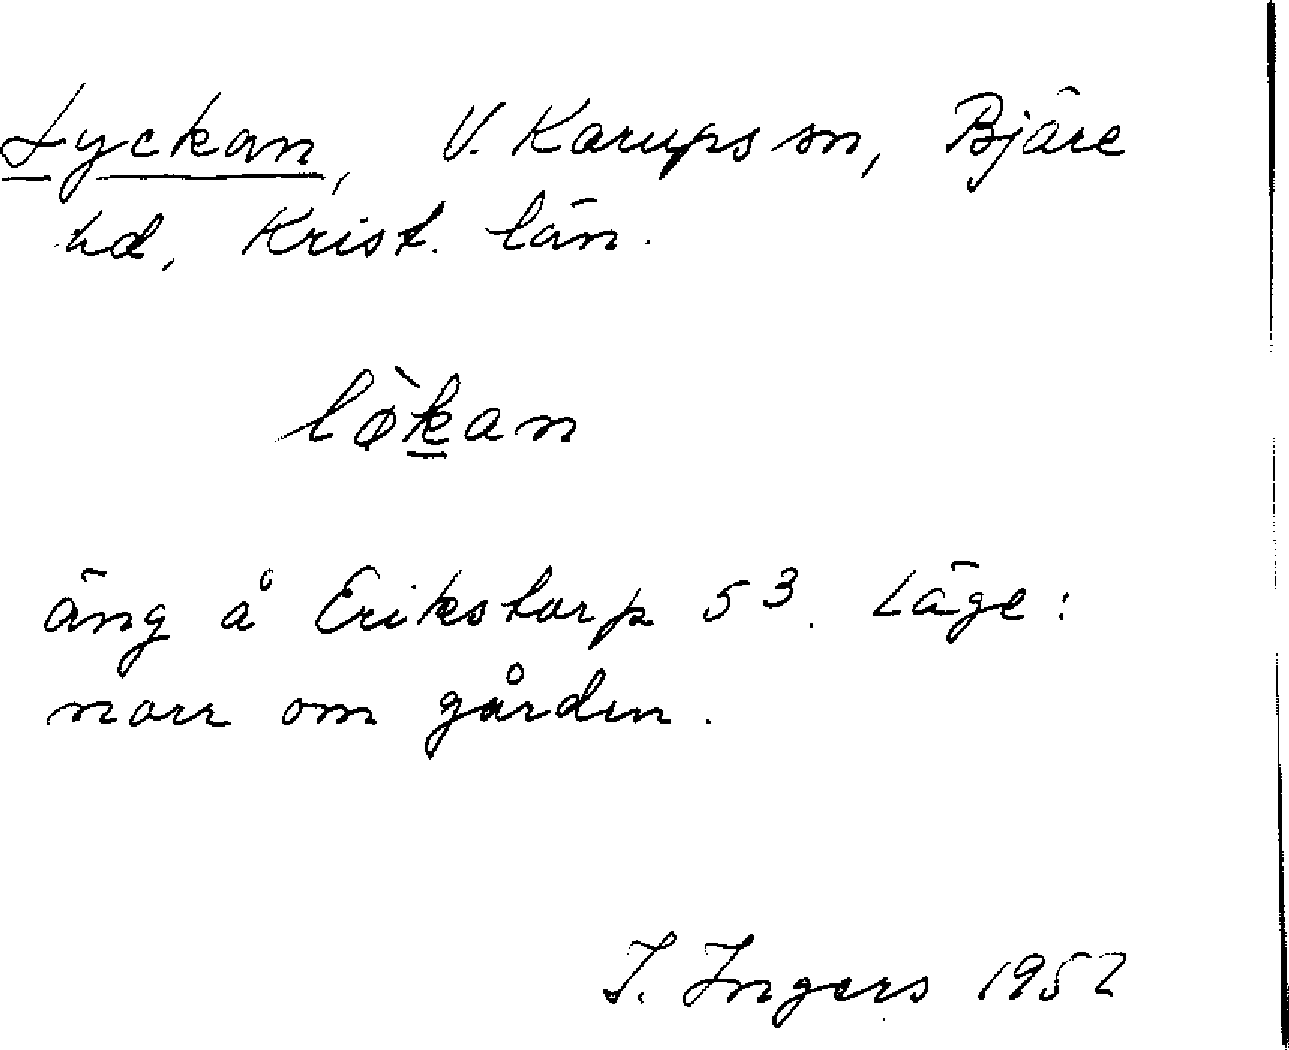 Lyckan, V. Karups sn, Bjäre
hd, Krist. län.
lø̀kan
äng å Erikstorp 5³. Läge:
norr om gården.
I. Ingers 1952